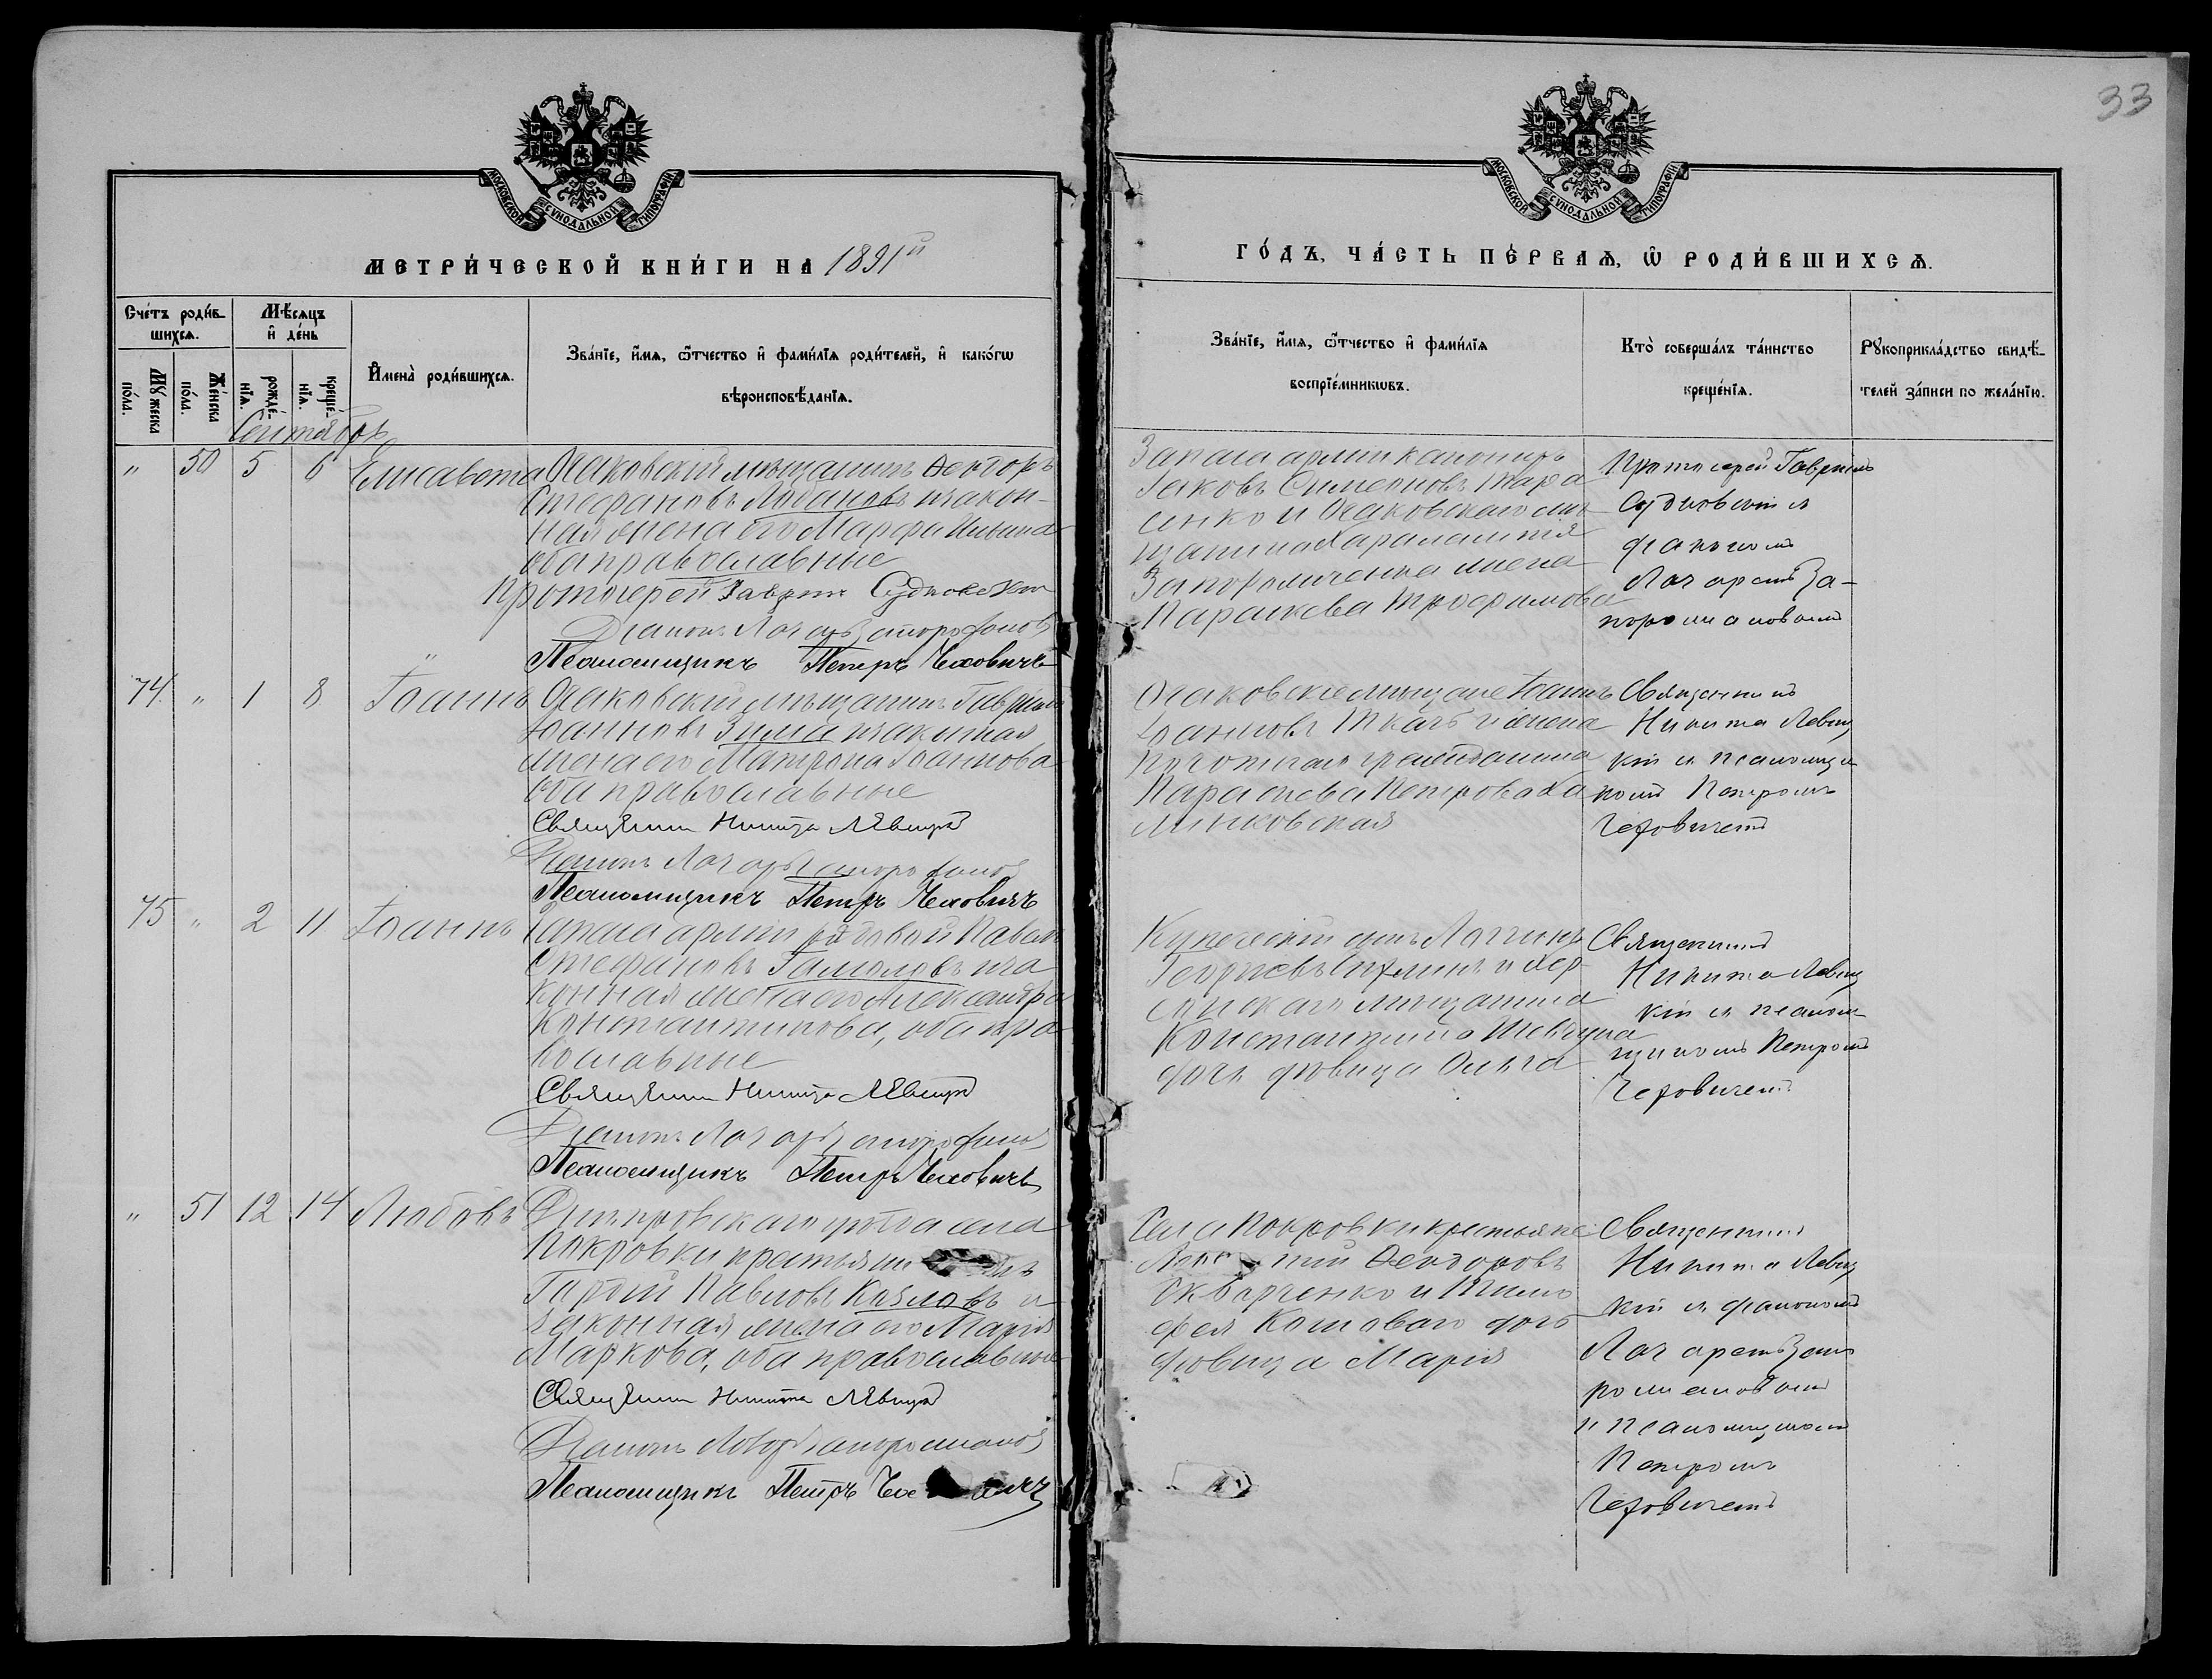 33
МОСКОВСКОЙ СѴНОДАЛЬНОЙ ТИПОГРАФІИ
МОСКОВСКОЙ СѴНОДАЛЬНОЙ ТИПОГРАФІИ
МЕТРИ́ЧЕСКОЙ КНИ́ГИ НА 1891й
ГО́ДЪ, ЧА́СТЬ ПЕ́РВАѦ, Ѡ РОДИ́ВШИХСѦ.
Сче́тъ роди́в-
шихсѧ.
Мꙋжеска
по́ла.
Же́нска
по́ла.
Мѣ́сѧцъ
и҆ де́нь
рожде́-
нїѧ.
креще́-
нїѧ.
И҆мена̀ роди́вшихсѧ.
Зва́нїе, и҆́мѧ, ѻ҆́тчество и҆ фами́лїѧ роди́телей, и҆ како́гѡ
вѣроисповѣ́данїѧ.
Зва́нїе, и҆́мѧ, ѻ҆́тчество и҆ фами́лїѧ
воспрїе́мникѡвъ.
Кто̀ соверша́лъ та́инство
креще́нїѧ.
Рꙋкоприкла́дство свидѣ́-
телей за́писи по жела́нїю.
Сентябрь
" 50 5 6 Елисавета
Очаковскій мѣщанинъ Ѳеодоръ
Стефановъ Лобановъ и закон-
ная жена его Марфа Ильина
оба православные
Протоіерей Гавріилъ Судковскій
Діаконъ Лазарь Запорожановъ
Псаломщикъ Петръ Чеховичъ
Запаса арміи канониръ
Іаковъ Симеоновъ Тара
сенко и Очаковскаго мѣ
щанина Харалампія
жена
Параскева Трофимова
Протоіерей Гавріилъ
Судковскій съ
діакономъ
Лазаремъ За-
порожановымъ
74 " 1 8 Іоаннъ
Очаковскій мѣщанинъ Гавріилъ
Іоанновъ Зима и законная
жена его Матрона Іоаннова
оба православные
Священникъ Никита Левицкій
Діаконъ Лазарь Запорожановъ
Псаломщикъ Петръ Чеховичъ
Очаковскіе мѣщане Іоаннъ
Іоанновъ Ткачъ и жена
гражданина
Параскева Петрова Ха
линковская
Священникъ
Никита Левиц
кій съ псаломщи
комъ Петромъ
Чеховичемъ
75 " 2 11 Іоаннъ
Запаса арміи рядовой Павелъ
Стефановъ Гамоловъ и за
конная жена его Александра
Константинова, оба пра
вославные
Священникъ Никита Левицкій
Діаконъ Лазарь Запорожановъ
Псаломщикъ Петръ Чеховичъ
Купеческій сынъ Логгинъ
Георгіевъ и Хер-
сонскаго мѣщанина
Константина Шевцува
дочь дѣвица Ольга
Священникъ
Никита Левиц
кій съ псалом-
щикомъ Петромъ
Чеховичемъ
" 51 12 14 Любовь
Днѣпровскаго уѣзда села
Покровки крестьянинъ
Гордій Павловъ Козловъ и
законная жена его Марія
Маркова, оба православные
Священникъ Никита Левицкій
Діаконъ Лазарь Запорожановъ
Псаломщикъ Петръ Чеховичъ
Села Покровки крестьяне
Ѳеодоровъ
Скварченко и Тимо
фея Кошоваго дочь
дѣвица Марія
Священникъ
Никита Левиц
кій съ діакономъ
Лазаремъ Запо
рожановымъ
и псаломщикомъ
Петромъ
Чеховичемъ